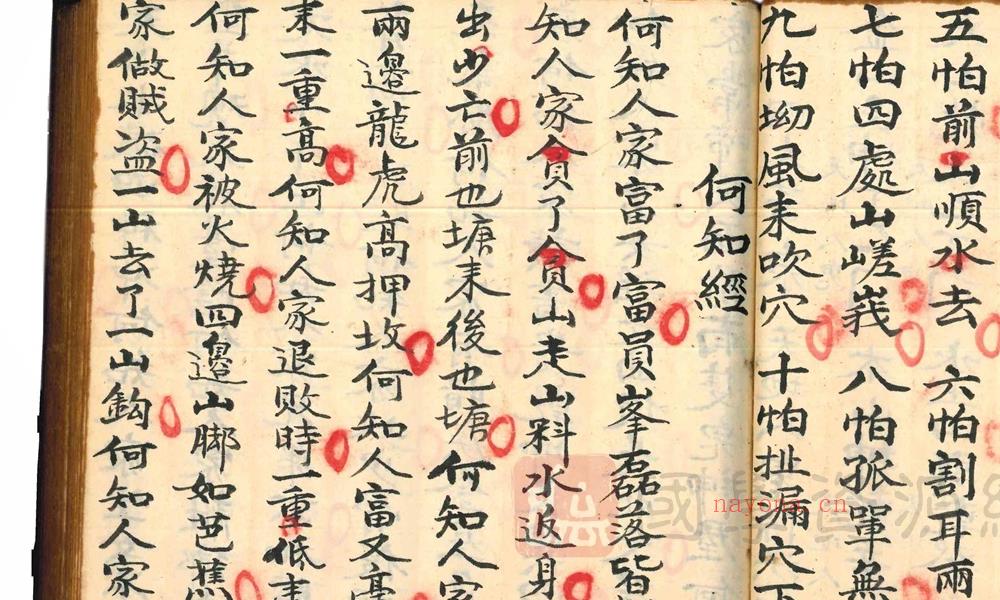 五怕前山順水去 六怕割耳兩
七怕四處山嵯峩 八怕孤單無
九怕坳風耒吹穴 十怕扯漏穴下
何知經
何知人家富了富員峯磊落皆
知人家貟了貟山走山斜水返身
出少亡前也塘耒後也塘何知人家
兩邊龍虎高押坟何知人富又豪
耒一重高何知人家退敗時一重低耒
何知人家被火燒四邊山脚如芭蕉
家做賊盗一山去了一山鈎何知人家
國學資源
nayona.cn